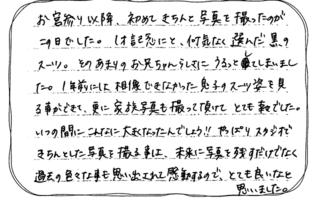 お宮参り以降、初めてきちんと写真を撮ったのが
この日でした。1才記念にと、何気なく選んだ黒の
スーツ。そのあまりのお兄ちゃんらしさにうるっとしてしまいまし
た。1年前には想像できなかった息子のスーツ姿を見
る事ができて、更に家族写真も撮って頂けとても幸でした。
いつの間にこんなに大きくなったんでしょう!!やっぱりスタジオで
きちんとした写真を撮る事は、未来に写真を残すだけでなく
過去の色々な事も思い出されて感動するので、とても良いなと
思いました。